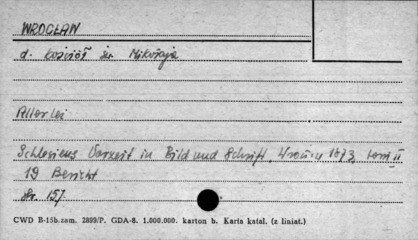 WROCŁAW
d. kościół św. Mikołaja
Allerlei
Schlesiens Vorzeit in Bild und Schrift, Wrocław 1873, tom II
19 Bericht
Str. 157
CWD B-15b.zam. 2899/P. GDA-8. 1.000.000. karton b. Karta katal. (z liniat.)